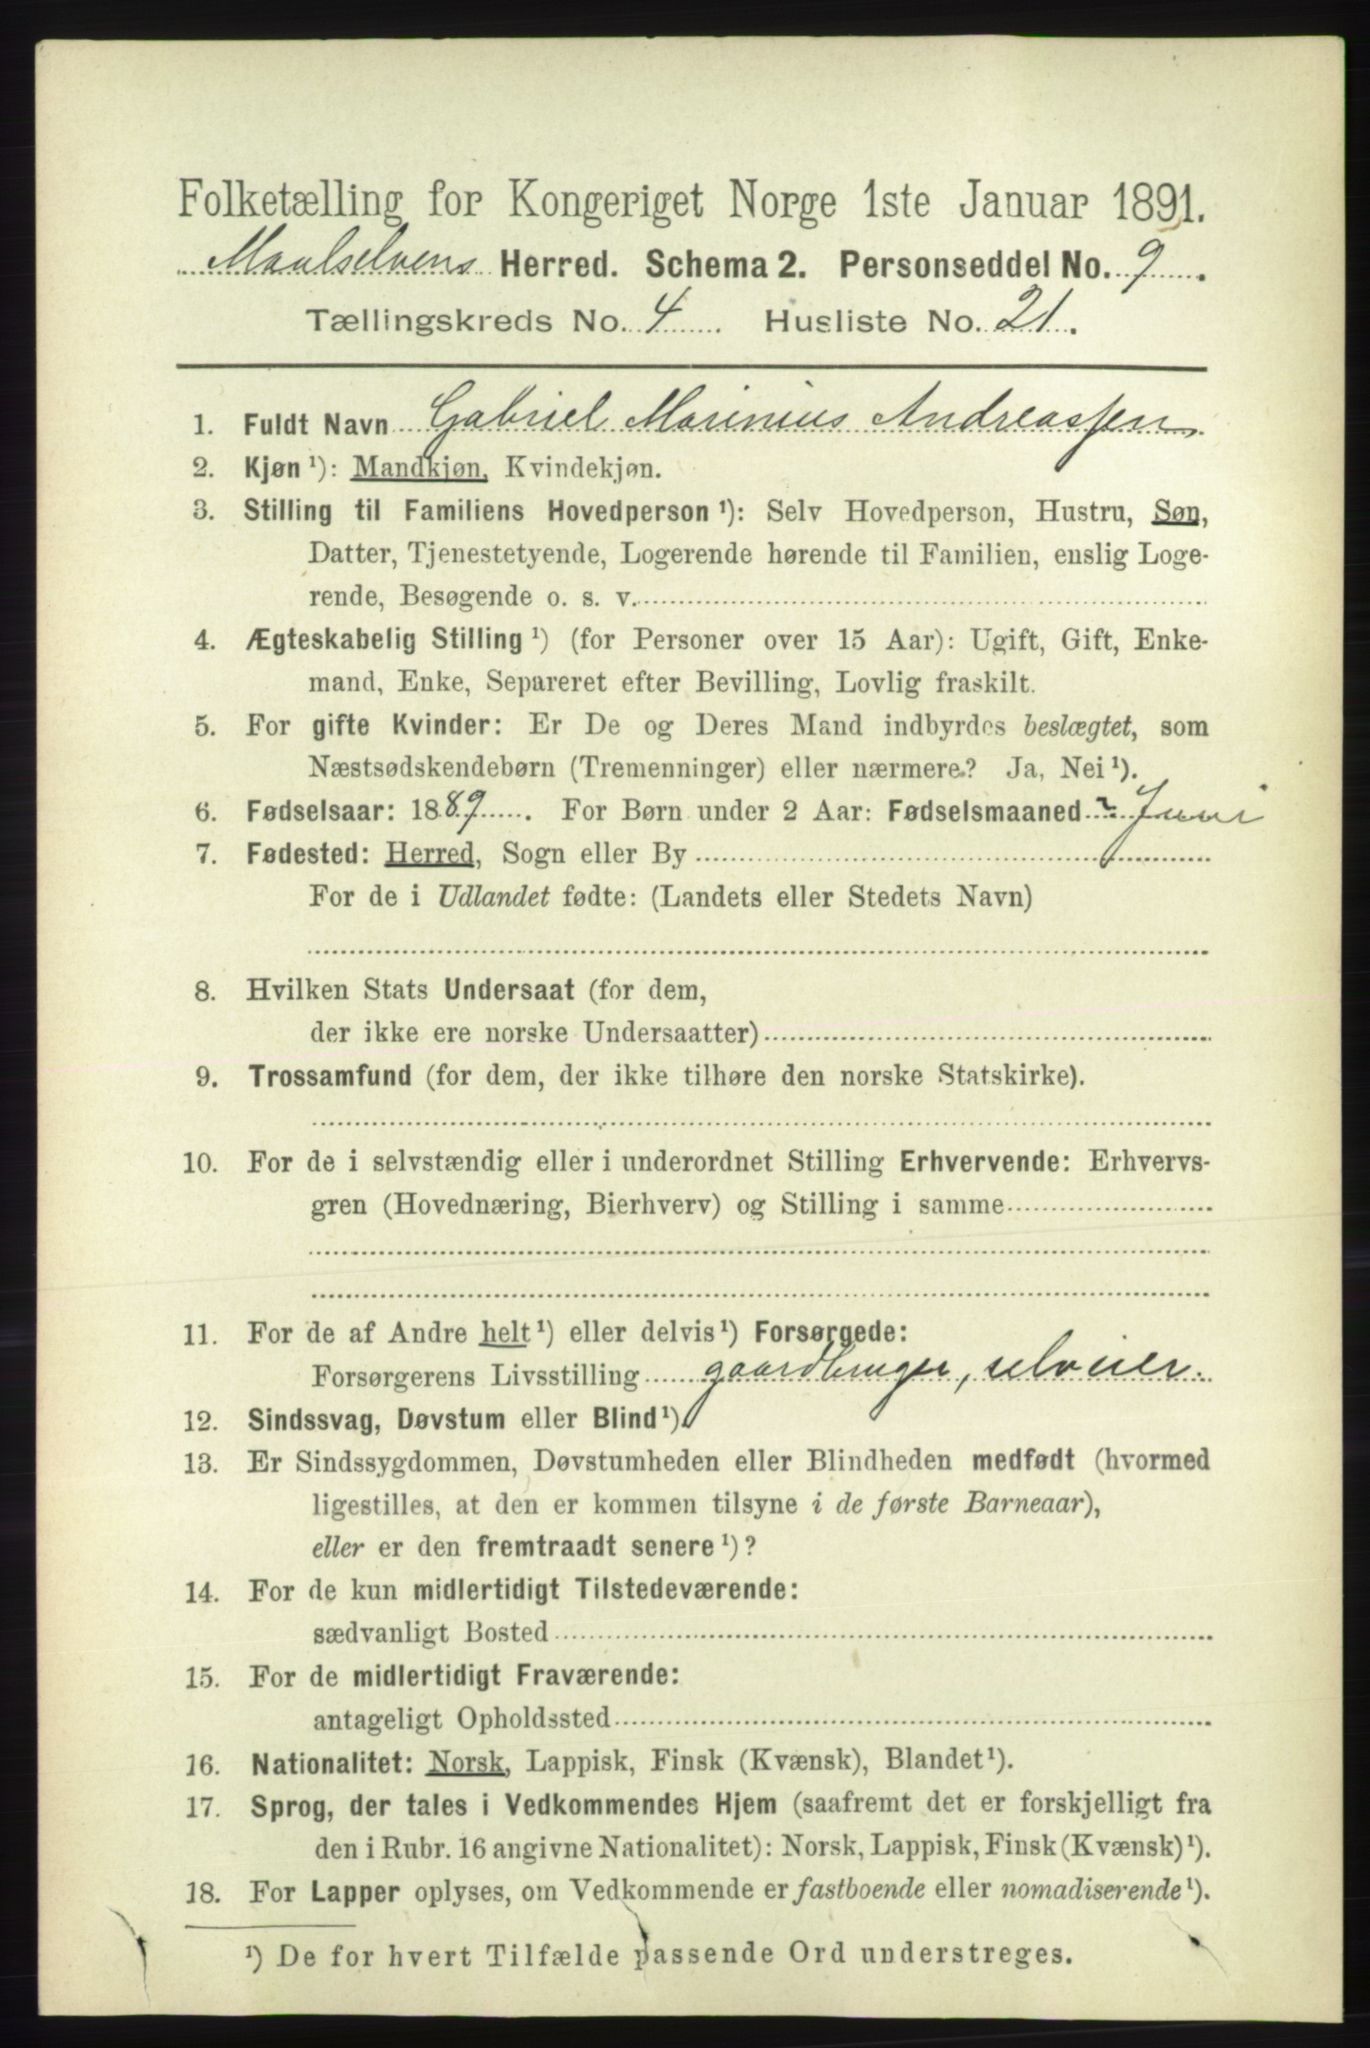 Folketælling for Kongeriget Norge 1ste Januar 1891.
Maalselvens Herred. Schema 2. Personseddel No. 9.
Tællingskreds No. 4. Husliste No. 21.
1. Fuldt Navn Gabriel Marinius Andreassen
2. Kjøn¹): Mandkjøn, Kvindekjøn.
3. Stilling til Familiens Hovedperson¹): Selv Hovedperson, Hustru, Søn,
Datter, Tjenestetyende, Logerende hørende til Familien, enslig Loge-
rende, Besøgende o. s. v.
4. Ægteskabelig Stilling¹) (for Personer over 15 Aar): Ugift, Gift, Enke-
mand, Enke, Separeret efter Bevilling, Lovlig fraskilt.
5. For gifte Kvinder: Er De og Deres Mand indbyrdes beslægtet, som
Næstsødskendebørn (Tremenninger) eller nærmere? Ja, Nei¹).
6. Fødselsaar: 1889. For Børn under 2 Aar: Fødselsmaaned Juni
7. Fødested: Herred, Sogn eller By
For de i Udlandet fødte: (Landets eller Stedets Navn)
8. Hvilken Stats Undersaat (for dem,
der ikke ere norske Undersaatter)
9. Trossamfund (for dem, der ikke tilhøre den norske Statskirke).
10. For de i selvstændig eller i underordnet Stilling Erhvervende: Erhvervs-
gren (Hovednæring, Bierhverv) og Stilling i samme
11. For de af Andre helt¹) eller delvis¹) Forsørgede:
Forsørgerens Livsstilling gaardbruger, selveier.
12. Sindssvag, Døvstum eller Blind¹).
13. Er Sindssygdommen, Døvstumheden eller Blindheden medfødt (hvormed
ligestilles, at den er kommen tilsyne i de første Barneaar),
eller er den fremtraadt senere¹)?
14. For de kun midlertidigt Tilstedeværende:
sædvanligt Bosted
15. For de midlertidigt Fraværende:
antageligt Opholdssted
16. Nationalitet: Norsk, Lappisk, Finsk (Kvænsk), Blandet¹).
17. Sprog, der tales i Vedkommendes Hjem (saafremt det er forskjelligt fra
den i Rubr. 16 angivne Nationalitet): Norsk, Lappisk, Finsk (Kvænsk)¹).
18. For Lapper oplyses, om Vedkommende er fastboende eller nomadiserende¹).
¹) De for hvert Tilfælde passende Ord understreges.